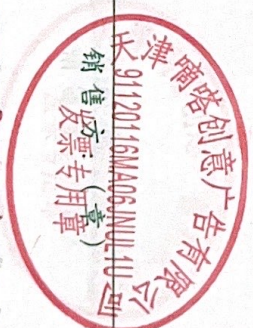 天津嘀嗒创意广告有限公司
91120116MA06JNUL1U
销售方:(章)
发票专用章